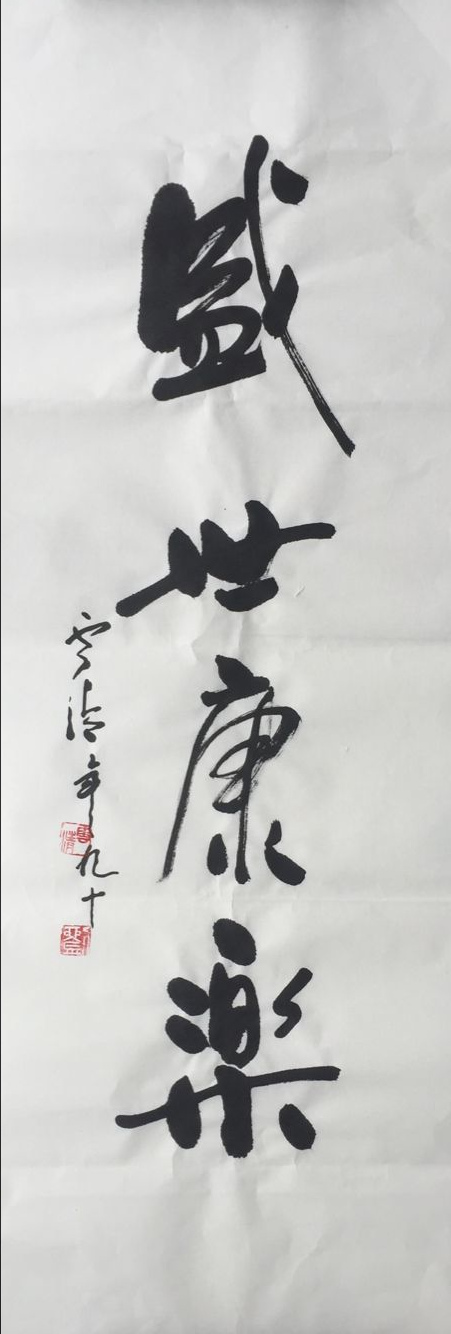 盛世康樂
雲清年九十
雲清